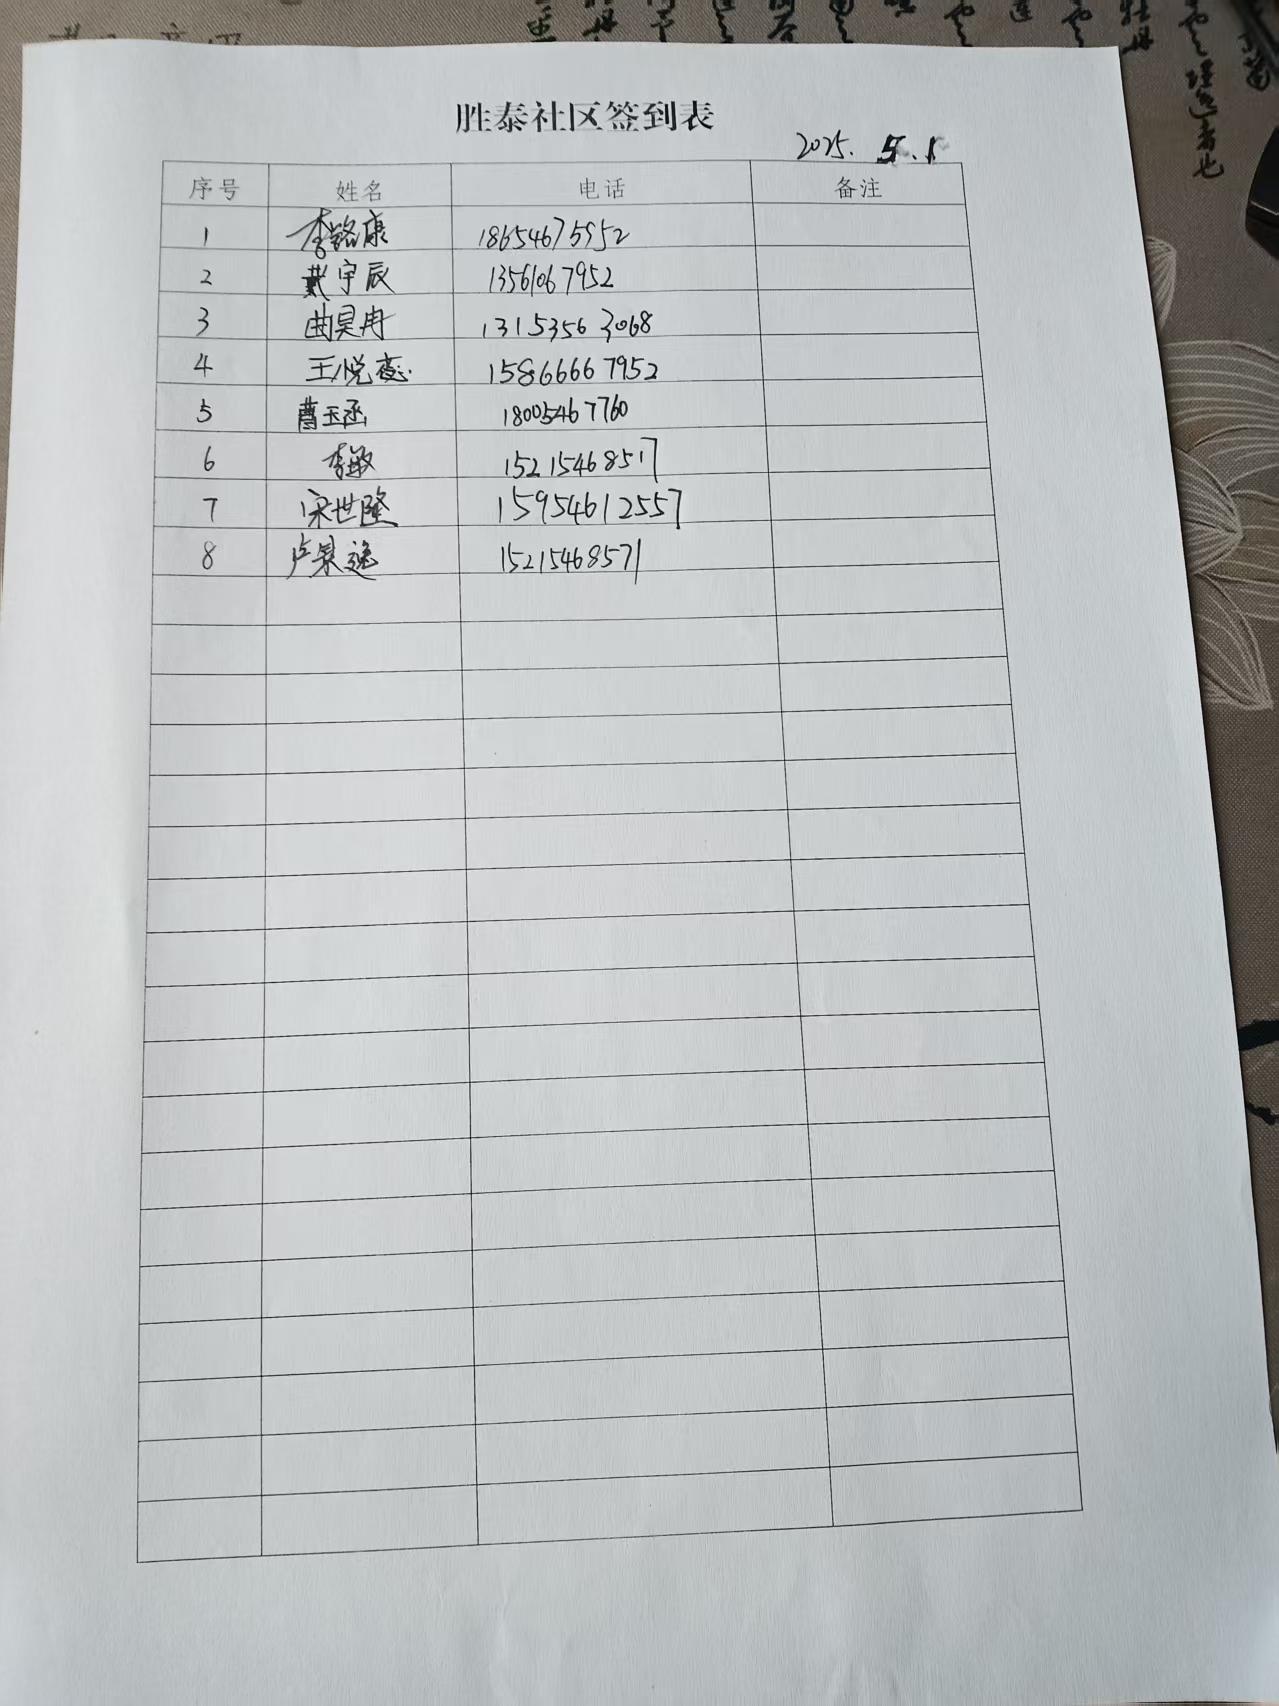 胜泰社区签到表
2025. 5.1
序号 姓名 电话 备注
1 李铭康 18654675952
2 戴宇辰 13561067952
3 曲昊冉 13153563068
4 王悦蕊 15866667952
5 曹玉函 18005467760
6 李敏 15215468517
7 宋世隆 15954612557
8 卢景逸 15215468571